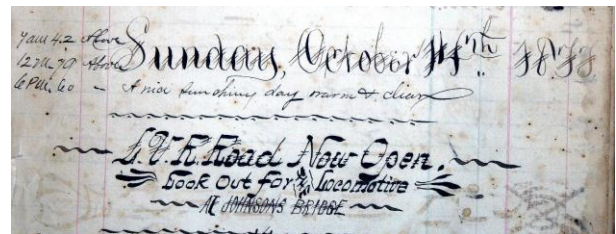 7 am 42 Above
12 M. 70 Above
6 P.M. 60 –
Sunday, October 14th
A nice Sunshiny day warm & clear
L.V.R. Road Now Open.
Look Out for the Locomotive
AT JOHNSONS BRIDGE